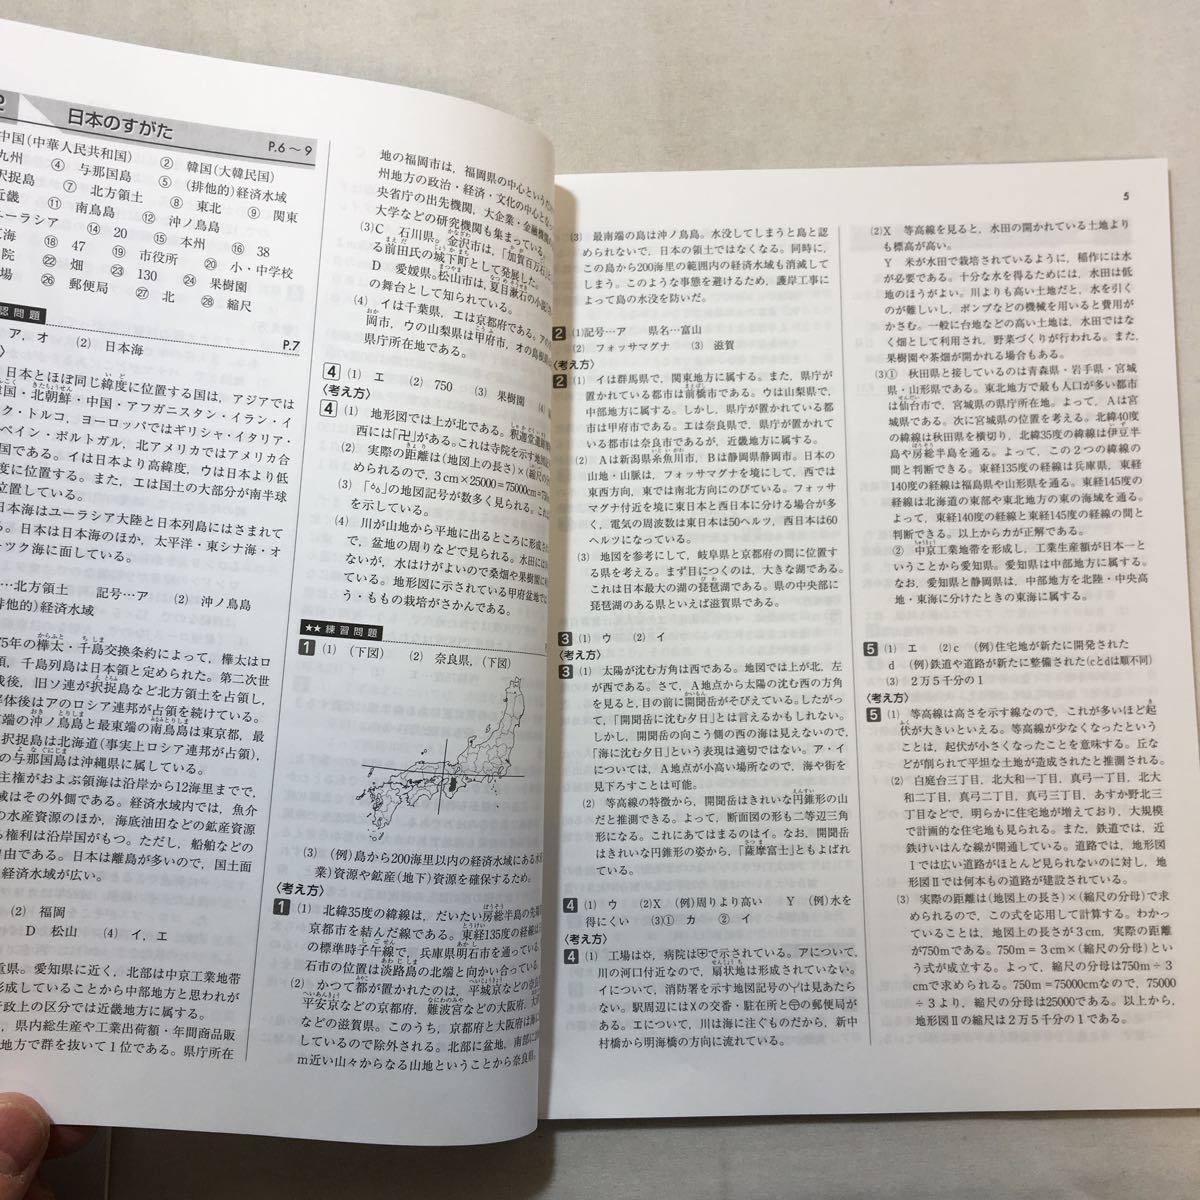 2 日本のすがた P.6～9
中国(中華人民共和国) ② 韓国(大韓民国)
九州 ④ 与那国島 ⑤ (排他的)経済水域
択捉島 ⑦ 北方領土 ⑧ 東北 ⑨ 関東
近畿 ⑪ 南鳥島 ⑫ 沖ノ鳥島
ユーラシア ⑭ 20 ⑮ 本州 ⑯ 38
⑱ 47 ⑲ 市役所 ⑳ 小・中学校
㉒ 畑 ㉓ 130 ㉔ 果樹園
㉖ 郵便局 ㉗ 北 ㉘ 縮尺
認問題 P.7
ア，オ (2) 日本海
日本とほぼ同じ緯度に位置する国は，アジアでは
韓国・北朝鮮・中国・アフガニスタン・イラン・イ
ク・トルコ，ヨーロッパではギリシャ・イタリア・
ペイン・ポルトガル，北アメリカではアメリカ合
国である。イは日本より高緯度，ウは日本より低
度に位置する。また，エは国土の大部分が南半球
位置している。
日本海はユーラシア大陸と日本列島にはさまれて
る。日本は日本海のほか，太平洋・東シナ海・オ
ーツク海に面している。
…北方領土 記号…ア (2) 沖ノ鳥島
排他的)経済水域
75年の樺太・千島交換条約によって，樺太はロ
領，千島列島は日本領と定められた。第二次世
戦後，旧ソ連が択捉島など北方領土を占領し，
解体後はアのロシア連邦が占領を続けている。
南端の沖ノ鳥島と最東端の南鳥島は東京都，最
択捉島は北海道(事実上ロシア連邦が占領)，
の与那国島は沖縄県に属している。
主権がおよぶ領海は沿岸から12海里までで，
域はその外側である。経済水域内では，魚介
の水産資源のほか，海底油田などの鉱産資源
る権利は沿岸国がもつ。ただし，船舶などの
自由である。日本は離島が多いので，国土面
経済水域が広い。
(2) 福岡
D 松山 (4) イ，エ
重県。愛知県に近く，北部は中京工業地帯
形成していることから中部地方と思われが
行政上の区分では近畿地方に属する。
，県内総生産や工業出荷額・年間商品販
地方で群を抜いて１位である。県庁所在
地の福岡市は，福岡県の中心という
州地方の政治・経済・文化の中心とな
央省庁の出先機関，大企業・金融機関
大学などの研究機関も集まっている。
(3)C 石川県。金沢市は，「加賀百万石
る前田氏の城下町として発展した。
D 愛媛県。松山市は，夏目漱石の小説
の舞台として知られている。
(4) イは千葉県，エは京都府である。ア
岡市，ウの山梨県は甲府市，オの島根
県庁所在地である。
4 (1) エ (2) 750 (3) 果樹園
〈考え方〉
4 (1) 地形図では上が北である。釈迦堂遺跡
西には「卍」がある。これは寺院を示す地図
(2) 実際の距離は(地図上の長さ)×(縮尺の
められるので，３cm×25000＝75000cm＝
(3) 「」の地図記号が数多く見られる。これ
を示している。
(4) 川が山地から平地に出るところに形成され
で，盆地の周りなどで見られる。水田には
ないが，水はけがよいので桑畑や果樹園に
ている。地形図に示されている甲府盆地では
う・ももの栽培がさかんである。
★★ 練習問題
1 (1) (下図) (2) 奈良県，(下図)
(3) (例)島から200海里以内の経済水域にある水
業)資源や鉱産(地下)資源を確保するため。
〈考え方〉
1 (1) 北緯35度の緯線は，だいたい房総半島の先端
京都市を結んだ線である。東経135度の経線は
の標準時子午線で，兵庫県明石市を通っている。
石市の位置は淡路島の北端と向かい合っている。
(2) かつて都が置かれたのは，平城京などの奈良
平安京などの京都府，難波宮などの大阪府，大
などの滋賀県。このうち，京都府と大阪府は海に
しているので除外される。北部に盆地，南部に
m近い山々からなる山地ということから奈良県。
5
(3) 最南端の島は沖ノ鳥島。水没してしまうと島と認
められないで，日本の領土ではなくなる。同時に，
この島から200海里の範囲内の経済水域も消滅して
しまう。このような事態を避けるため，護岸工事に
よって島の水没を防いだ。
2 (1)記号…ア 県名…富山
(2) フォッサマグナ (3) 滋賀
〈考え方〉
2 (1) イは群馬県で，関東地方に属する。また，県庁が
置かれている都市は前橋市である。ウは山梨県で，
中部地方に属する。しかし，県庁が置かれている都
市は甲府市である。エは奈良県で，県庁が置かれて
いる都市は奈良市であるが，近畿地方に属する。
(2) Ａは新潟県糸魚川市，Ｂは静岡県静岡市。日本の
山地・山脈は，フォッサマグナを境にして，西では
東西方向，東では南北方向にのびている。フォッサ
マグナ付近を境に東日本と西日本に分ける場合が多
く，電気の周波数は東日本は50ヘルツ，西日本は60
ヘルツになっている。
(3) 地図を参考にして，岐阜県と京都府の間に位置す
る県を考える。まず目につくのは，大きな湖である。
これは日本最大の湖の琵琶湖である。県の中央部に
琵琶湖のある県といえば滋賀県である。
3 (1) ウ (2) イ
〈考え方〉
3 (1) 太陽が沈む方角は西である。地図では上が北，左
が西である。さて，Ａ地点から太陽の沈む西の方角
を見ると，目の前に開聞岳がそびえている。したがっ
て，「開聞岳に沈む夕日」とは言えるかもしれない。
しかし，開聞岳の向こう側の西の海は見えないので，
「海に沈む夕日」という表現は適切ではない。ア・イ
については，Ａ地点が小高い場所なので，海や街を
見下ろすことは可能。
(2) 等高線の特徴から，開聞岳はきれいな円錐形の山
だと推測できる。よって，断面図の形も二等辺三角
形になる。これにあてはまるのはイ。なお，開聞岳
はきれいな円錐形の姿から，「薩摩富士」ともよばれ
ている。
4 (1) ウ (2)Ｘ (例)周りより高い Ｙ (例)水を
得にくい (3)① カ ② イ
〈考え方〉
4 (1) 工場は，病院はで示されている。アについて，
川の河口付近なので，扇状地は形成されていない。
イについて，消防署を示す地図記号のは見あたら
ない。駅周辺にはＸの交番・駐在所と〒の郵便局が
ある。エについて，川は海に注ぐものだから，新中
村橋から明海橋の方向に流れている。
(2)Ｘ 等高線を見ると，水田の開かれている土地より
も標高が高い。
Ｙ 米が水田で栽培されているように，稲作には水
が必要である。十分な水を得るためには，水田は低
地のほうがよい。川よりも高い土地だと，水を引く
のが難しいし，ポンプなどの機械を用いると費用が
かさむ。一般に台地などの高い土地は，水田ではな
く畑として利用され，野菜づくりが行われる。また，
果樹園や茶畑が開かれる場合もある。
(3)① 秋田県と接しているのは青森県・岩手県・宮城
県・山形県である。東北地方で最も人口が多い都市
は仙台市で，宮城県の県庁所在地。よって，Ａは宮
城県である。次に宮城県の位置を考える。北緯40度
の緯線は秋田県を横切り，北緯35度の緯線は伊豆半
島や房総半島を通る。よって，この２つの緯線の
間と判断できる。東経135度の経線は兵庫県，東経
140度の経線は福島県や山形県を通る。東経145度の
経線は北海道の東部や東北地方の東の海域を通る。
よって，東経140度の経線と東経145度の経線の間と
判断できる。以上からカが正解である。
② 中京工業地帯を形成し，工業生産額が日本一と
いうことから愛知県。愛知県は中部地方に属する。
なお，愛知県と静岡県は，中部地方を北陸・中央高
地・東海に分けたときの東海に属する。
5 (1) エ (2)ｃ (例)住宅地が新たに開発された
ｄ (例)鉄道や道路が新たに整備された(ｃとｄは順不同)
(3) ２万５千分の１
〈考え方〉
5 (1) 等高線は高さを示す線なので，これが多いほど起
伏が大きいといえる。等高線が少なくなったという
ことは，起伏が小さくなったことを意味する。丘な
どが削られて平坦な土地が造成されたと推測される。
(2) 白庭台三丁目，北大和一丁目，真弓一丁目，北大
和二丁目，真弓二丁目，真弓三丁目，あすか野北三
丁目などで，明らかに住宅地が増えており，大規模
で計画的な住宅地も見られる。また，鉄道では，近
鉄けいはんな線が開通している。道路では，地形図
Ⅰでは広い道路がほとんど見られないのに対し，地
形図Ⅱでは何本もの道路が建設されている。
(3) 実際の距離は(地図上の長さ)×(縮尺の分母)で求
められるので，この式を応用して計算する。わかっ
ていることは，地図上の長さが３cm，実際の距離
が750mである。750m＝３cm×(縮尺の分母)とい
う式が成立する。よって，縮尺の分母は750m÷３
cmで求められる。750m＝75000cmなので，75000
÷３より，縮尺の分母は25000である。以上から，
地形図Ⅱの縮尺は２万５千分の１である。